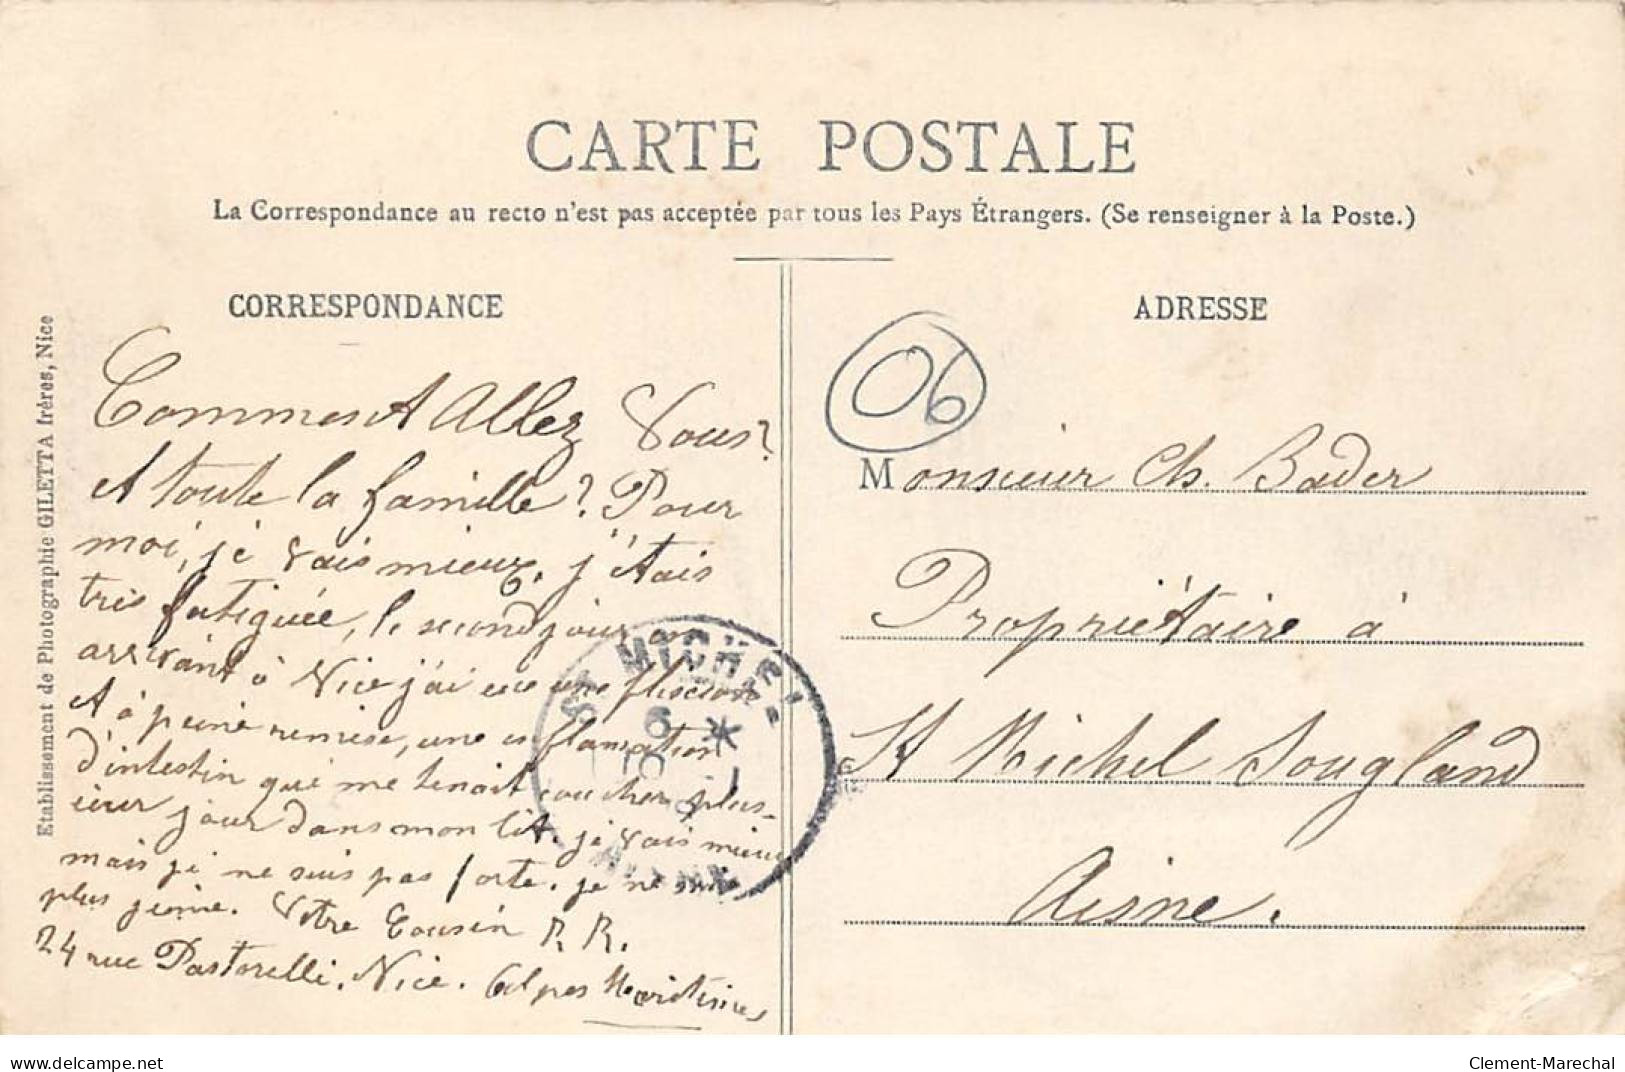 CARTE POSTALE
La Correspondance au recto n'est pas acceptée par tous les Pays Étrangers. (Se renseigner à la Poste.)
CORRESPONDANCE
Comment Allez Vous?
et toute la famille? Pour
moi, je vais mieux, j'étais
très fatiguée, le second jour en
arrivant à Nice j'ai eue une fluxion
et à peine remise, une inflamation
d'intestin qui me tenait coucher plus-
ieur jour dans mon lit. je vais mieux
mais je ne suis pas forte. je ne suis
plus jeune. Votre Cousin R.R.
24 rue Pastorelli. Nice. Alpes Maritimes
Etablissement de Photographie GILETTA frères, Nice
ADRESSE
06
Monsieur Ch. Bader
Propriétaire à
St Michel Sougland
Aisne.
ST MICHEL
6 *
AISNE
www.delcampe.net
Clement-Marechal